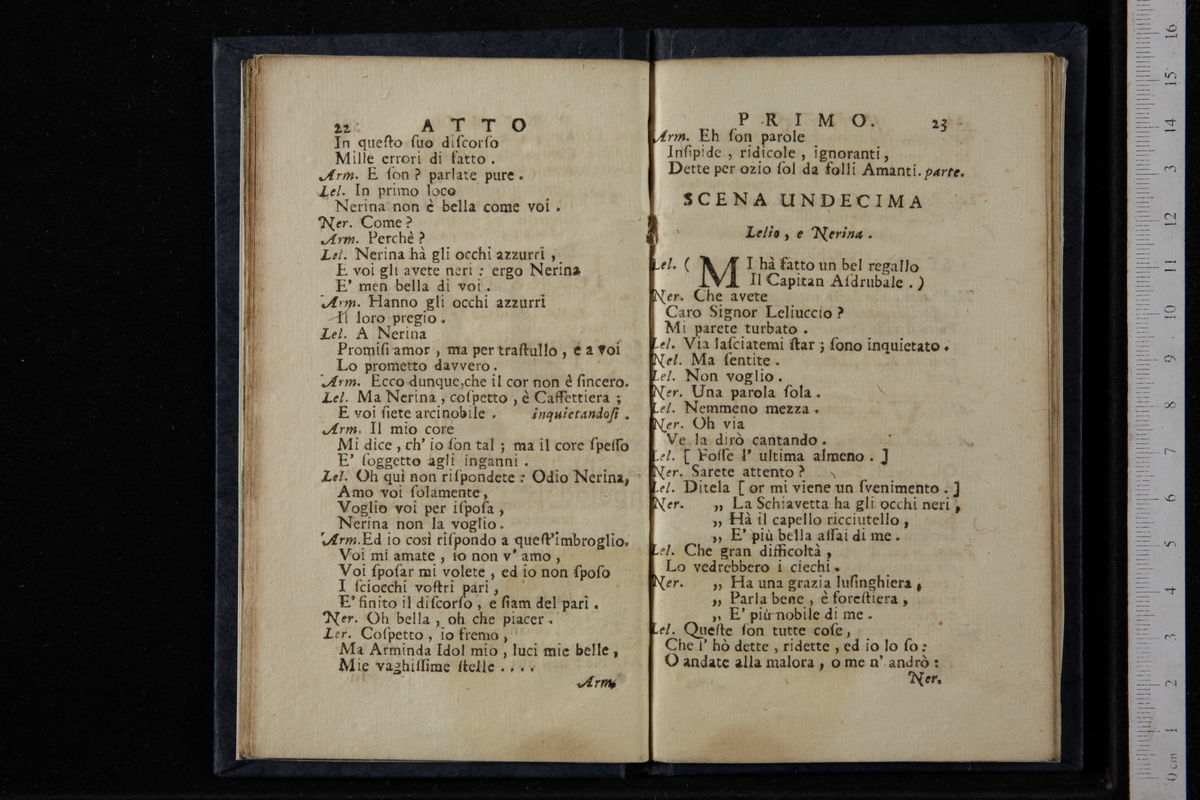 22 ATTO
In queſto ſuo diſcorſo
Mille errori di fatto .
Arm. E ſon ? parlate pure .
Lel. In primo loco
Nerina non è bella come voi .
Ner. Come ?
Arm. Perchè ?
Lel. Nerina hà gli occhi azzurri ,
E voi gli avete neri : ergo Nerina
E' men bella di voi .
Arm. Hanno gli occhi azzurri
Il loro pregio .
Lel. A Nerina
Promiſi amor , ma per traſtullo , e a voi
Lo prometto davvero .
Arm. Ecco dunque,che il cor non è ſincero.
Lel. Ma Nerina , coſpetto , è Caffettiera ;
E voi ſiete arcinobile . inquietandoſi .
Arm. Il mio core
Mi dice , ch' io ſon tal ; ma il core ſpeſſo
E' ſoggetto agli inganni .
Lel. Oh quì non riſpondete : Odio Nerina,
Amo voi ſolamente ,
Voglio voi per iſpoſa ,
Nerina non la voglio .
Arm.Ed io così riſpondo a queſt'imbroglio.
Voi mi amate , io non v' amo ,
Voi ſpoſar mi volete , ed io non ſpoſo
I ſciocchi voſtri pari ,
E' finito il diſcorſo , e ſiam del pari .
Ner. Oh bella , oh che piacer .
Ler. Coſpetto , io fremo ,
Ma Arminda Idol mio , luci mie belle ,
Mie vaghiſſime ſtelle . . . .
Arm.
PRIMO. 23
Arm. Eh ſon parole
Inſipide , ridicole , ignoranti ,
Dette per ozio ſol da folli Amanti. parte.
SCENA UNDECIMA
Lelio , e Nerina .
Lel. ( MI hà fatto un bel regallo
Il Capitan Aſdrubale . )
Ner. Che avete
Caro Signor Leliuccio ?
Mi parete turbato .
Lel. Via laſciatemi ſtar ; ſono inquietato .
Nel. Ma ſentite .
Lel. Non voglio .
Ner. Una parola ſola .
Lel. Nemmeno mezza .
Ner. Oh via
Ve la dirò cantando .
Lel. [ Foſſe l' ultima almeno . ]
Ner. Sarete attento ?
Lel. Ditela [ or mi viene un ſvenimento . ]
Ner. ,, La Schiavetta ha gli occhi neri ,
,, Hà il capello ricciutello ,
,, E' più bella aſſai di me .
Lel. Che gran difficoltà ,
Lo vedrebbero i ciechi .
Ner. ,, Ha una grazia luſinghiera ,
,, Parla bene , è foreſtiera ,
,, E' più nobile di me .
Lel. Queſte ſon tutte coſe ,
Che l' hò dette , ridette , ed io lo ſo :
O andate alla malora , o me n' andrò :
Ner.
16
15
14
13
12
11
10
9
8
7
6
5
4
3
2
1
0 cm